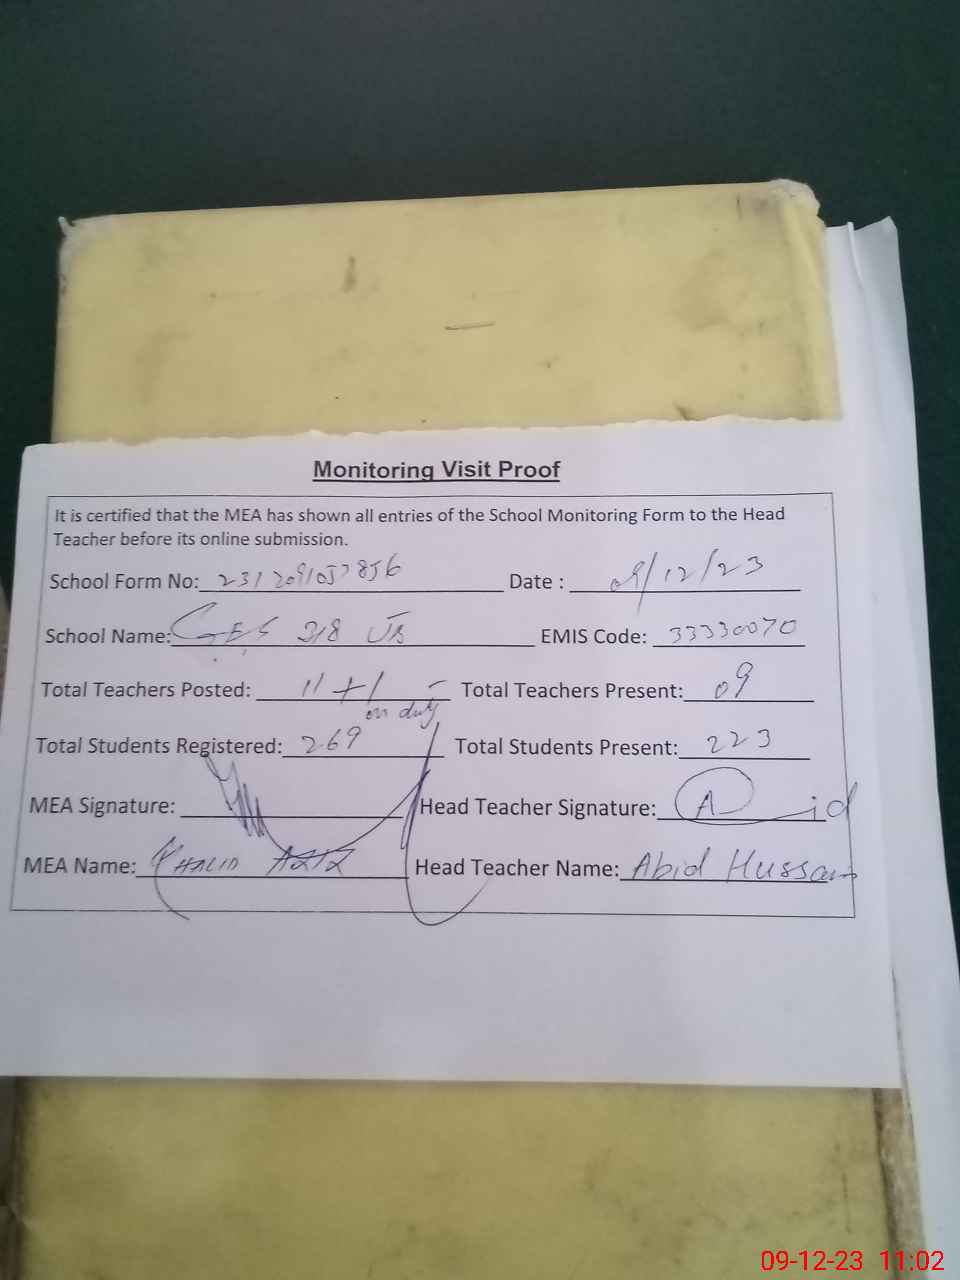 Monitoring Visit Proof
It is certified that the MEA has shown all entries of the School Monitoring Form to the Head
Teacher before its online submission.
School Form No: 2312091057856 Date : 09/12/23
School Name: GES 318 JB EMIS Code: 33330070
Total Teachers Posted: 11+1 - Total Teachers Present: 09
on duty
Total Students Registered: 269 Total Students Present: 223
MEA Signature: Head Teacher Signature:
MEA Name: KHALID AZIZ Head Teacher Name: Abid Hussain
09-12-23 11:02